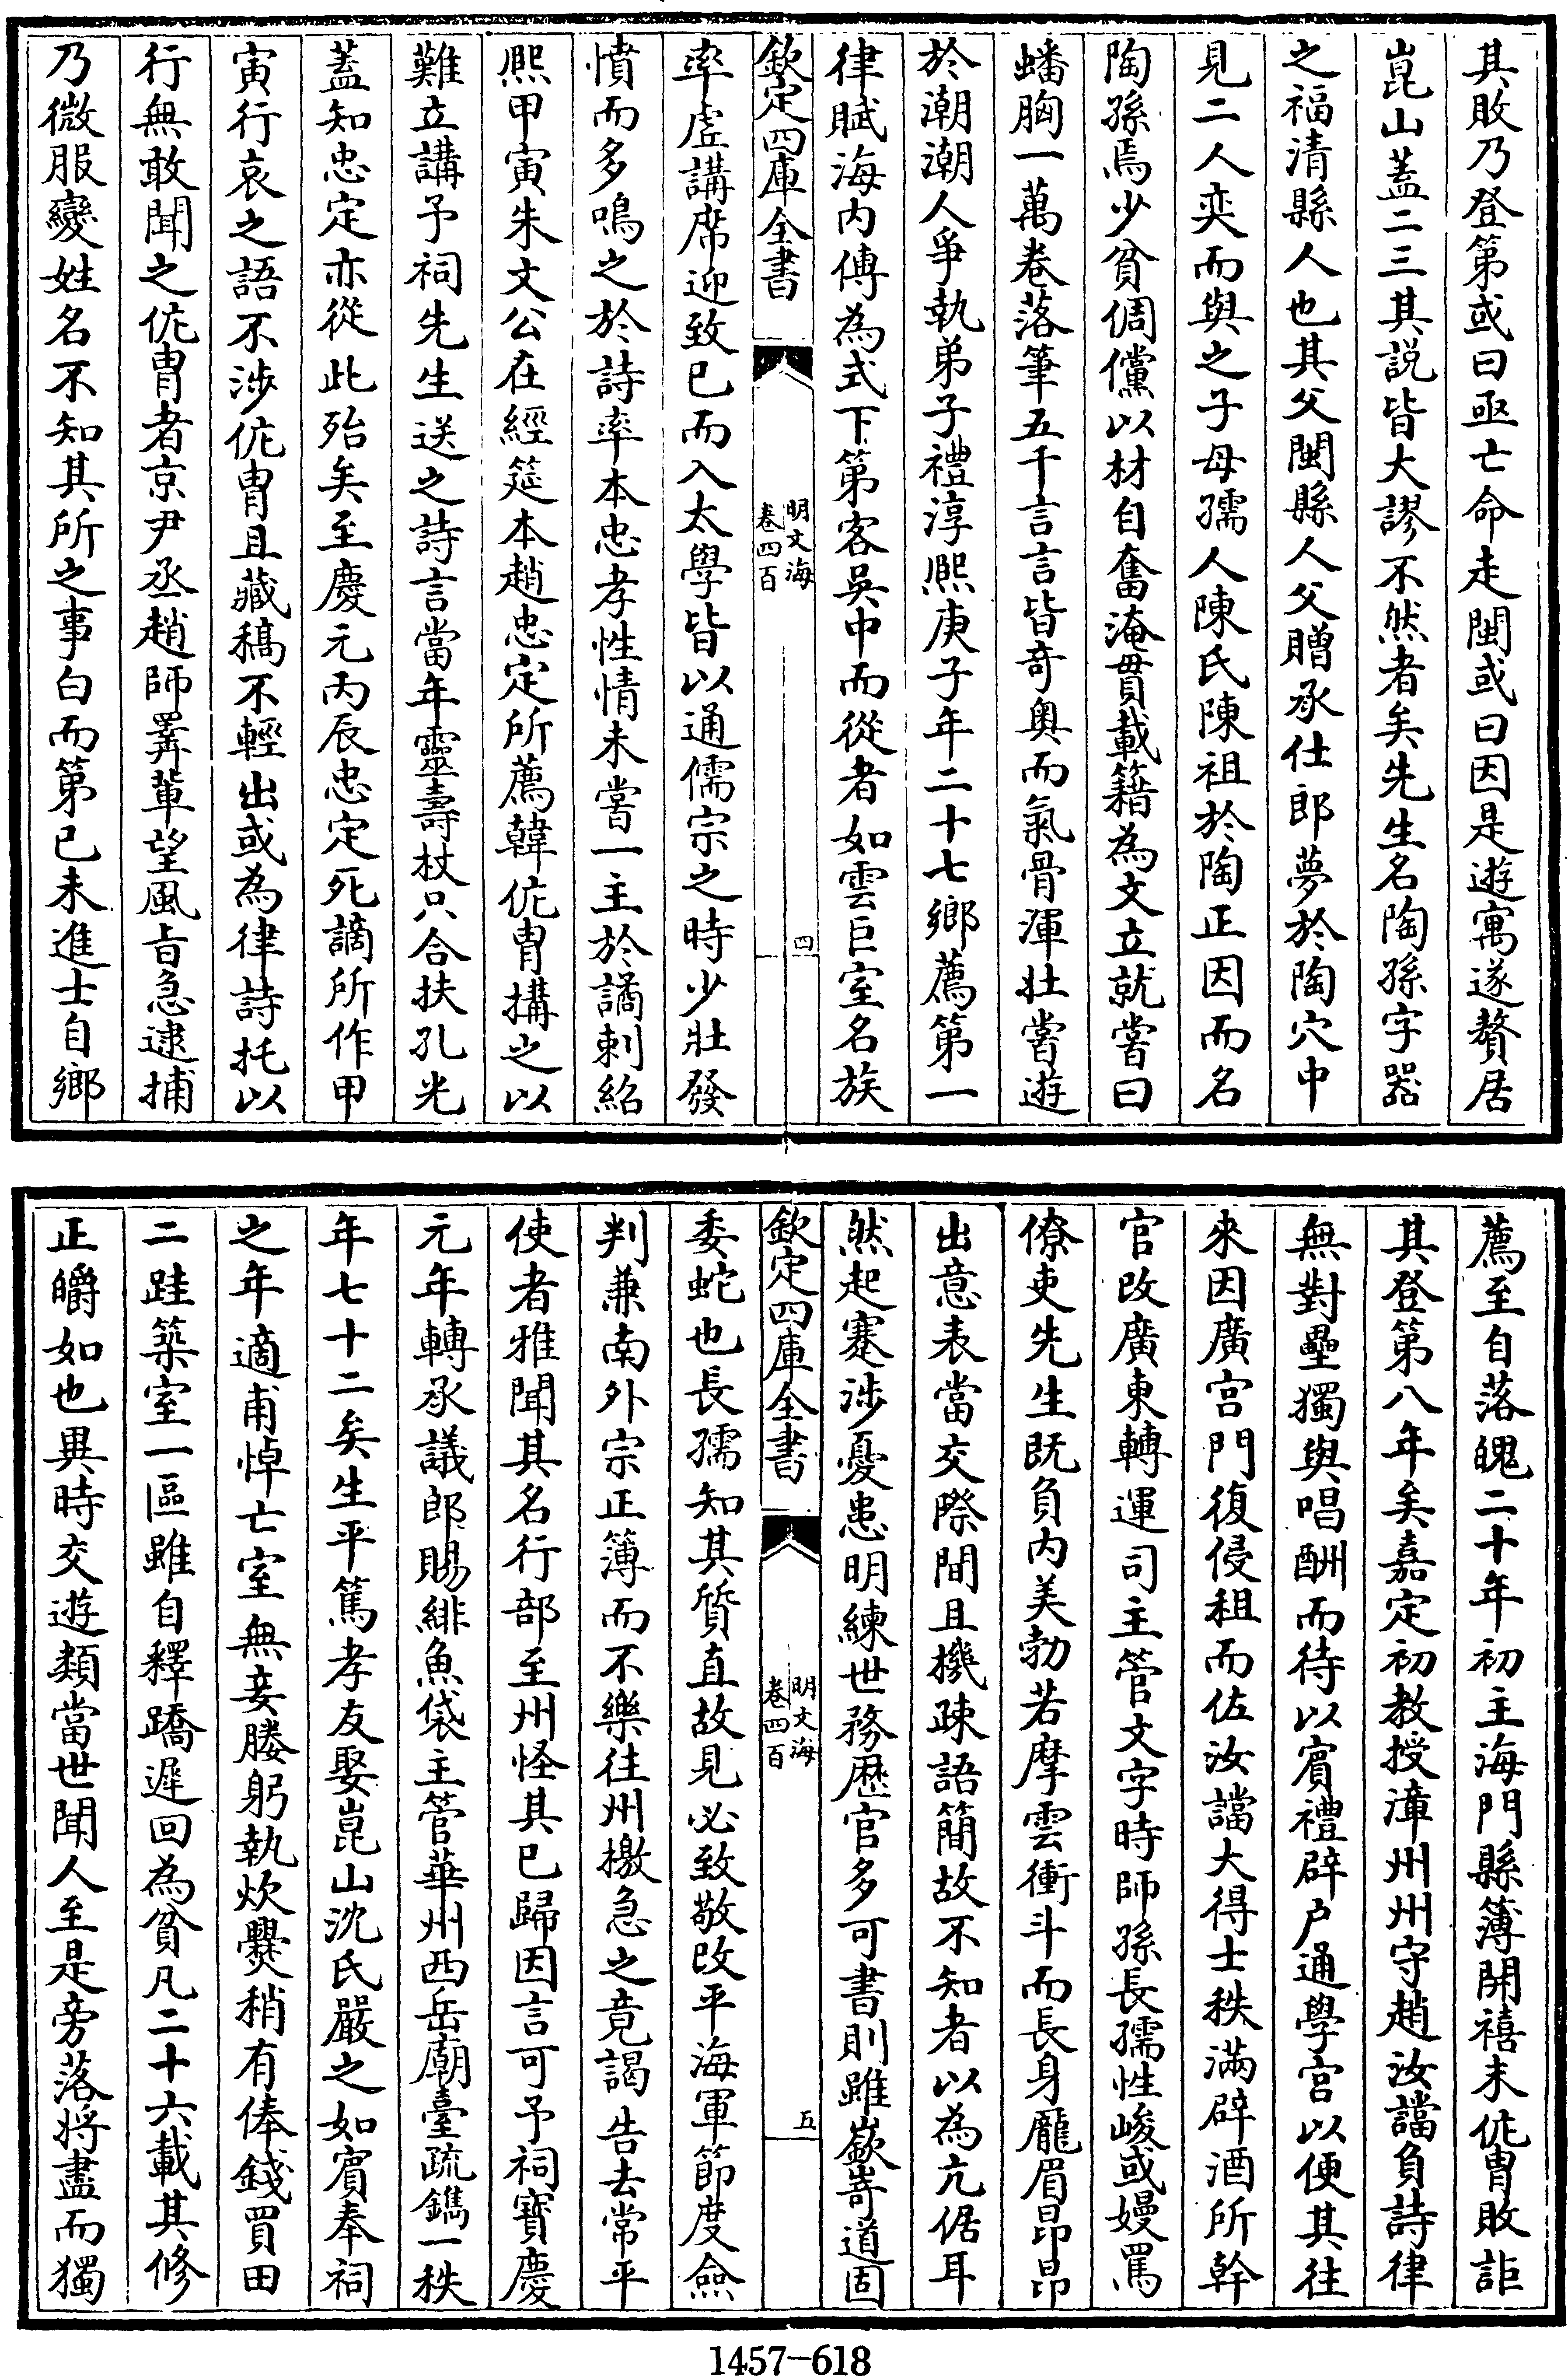 其敗乃登第或曰亟亡命走閩或曰因是遊寓遂贅居
崑山蓋二三其說皆大謬不然者矣先生名陶孫字器
之福清縣人也其父閩縣人父贈承仕郎夢於陶穴中
見二人奕而與之子母孺人陳氏陳祖於陶正因而名
陶孫焉少貧倜儻以材自奮淹貫載籍為文立就嘗曰
蟠胸一萬卷落筆五千言言皆奇奧而氣骨渾壯嘗遊
於潮潮人爭執弟子禮淳熙庚子年二十七鄉薦第一
律賦海内傳為式下第客吳中而從者如雲巨室名族
欽定四庫全書
明文海
卷四百
四
率虛講席迎致已而入太學皆以通儒宗之時少壯發
憤而多鳴之於詩率本忠孝性情未嘗一主於譎刺紹
熙甲寅朱文公在經筵本趙忠定所薦韓侂胄搆之以
難立講予祠先生送之詩言當年靈壽杖只合扶孔光
蓋知忠定亦從此殆矣至慶元丙辰忠定死謫所作甲
寅行哀之語不涉侂胄且藏稿不輕出或為律詩托以
行無敢聞之侂胄者京尹丞趙師𢍰輩望風㫖急逮捕
乃微服變姓名不知其所之事白而第已未進士自鄉
薦至自落魄二十年初主海門縣簿開禧末侂胄敗詎
其登第八年矣嘉定初教授漳州州守趙汝讜負詩律
無對壘獨與唱酬而待以賓禮辟户通學宫以便其往
來因廣宫門復侵租而佐汝讜大得士秩滿辟酒所幹
官改廣東轉運司主管文字時師孫長孺性峻或嫚罵
僚吏先生既負内美勃若摩雲衝斗而長身龎眉昂昂
出意表當交際間且機疎語簡故不知者以為亢倨耳
然起蹇涉憂患明練世務歴官多可書則雖嶔崎道固
欽定四庫全書
明文海
卷四百
五
委蛇也長孺知其質直故見必致敬改平海軍節度僉
判兼南外宗正簿而不樂往州檄急之竟謁告去常平
使者雅聞其名行部至州怪其已歸因言可予祠寶慶
元年轉承議郎賜緋魚袋主管華州西岳廟臺疏鐫一秩
年七十二矣生平篤孝友娶崑山沈氏嚴之如賓奉祠
之年適甫悼亡室無妾媵躬執炊爨稍有俸錢買田
二畦築室一區雖自釋蹻遲回為貧凡二十六載其修
正皭如也異時交遊類當世聞人至是旁落將盡而獨
1457-618